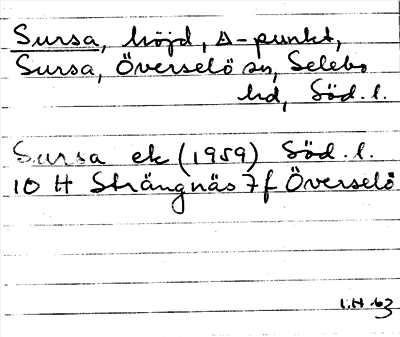 Sursa, höjd, Δ-punkt,
Sursa, Överselö sn, Selebo
hd, Söd. l.
Sursa ek (1959) Söd. l.
10 H Strängnäs 7f Överselö
I.H. 63